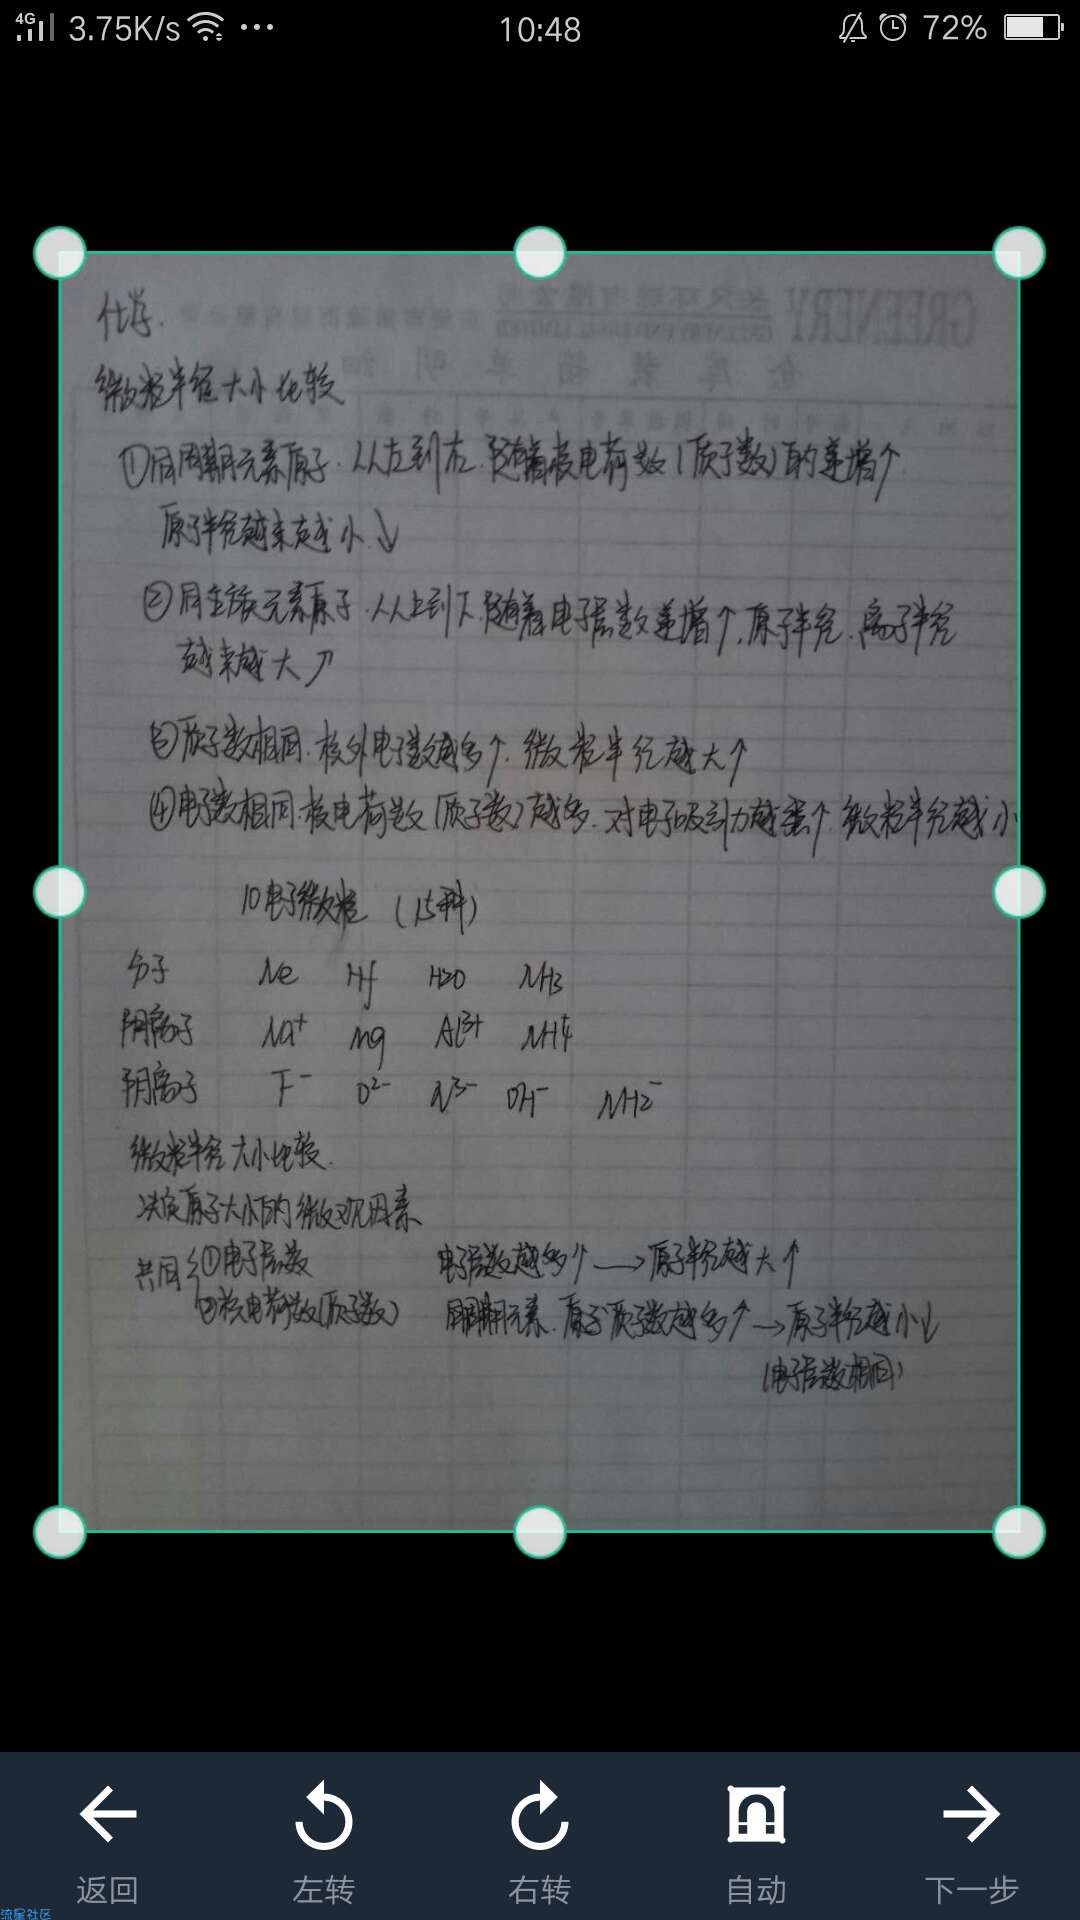 4G 3.75K/s ... 10:48 72%
GREENERY
仓库装箱单明细
化学.
微粒半径大小比较
①同周期元素原子.从左到右.随着核电荷数(质子数)的递增↑
原子半径越来越小↓
②同主族元素原子.从上到下.随着电子层数递增↑.原子半径.离子半径
越来越大↗
③质子数相同.核外电子数越多↑.微粒半径越大↑
④电子数相同.核电荷数(质子数)越多.对电子吸引力越强↑.微粒半径越小
10电子微粒 (15种)
分子 Ne Hf H2O NH3
阳离子 Na+ Mg Al3+ NH4+
阴离子 F- O2- N3- OH- NH2-
微粒半径大小比较.
决定原子大小的微观因素
共同{①电子层数 电子层数越多↑→原子半径越大↑
②核电荷数(质子数) 同周期元素.原子质子数越多↑→原子半径越小↓
(电子层数相同)
返回 左转 右转 自动 下一步
流星社区